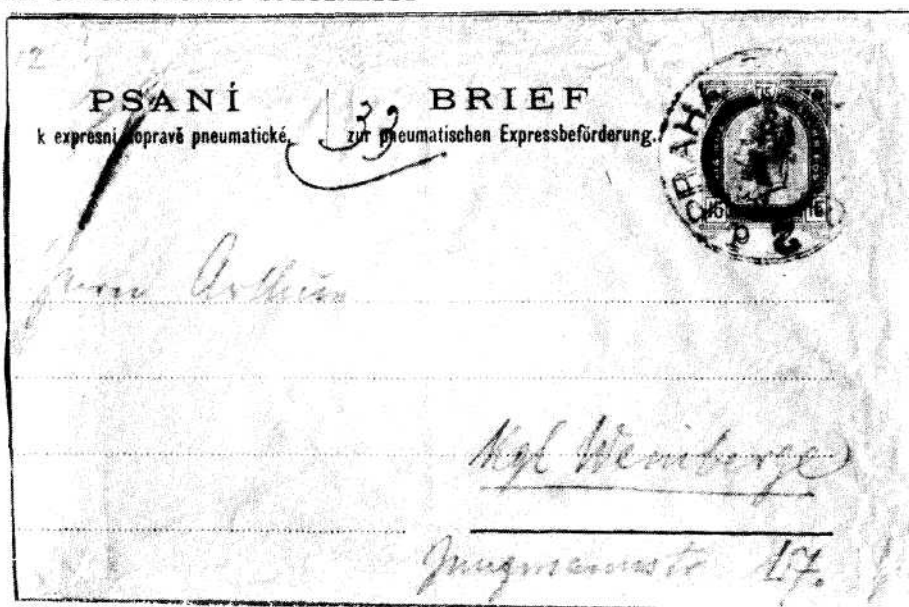 12
PSANÍ BRIEF
k expresní dopravě pneumatické, zur pneumatischen Expressbeförderung.
139
PRAHA
15
15 15
Herrn Arthur
Kgl Weinberge
Jungmannstr 17.